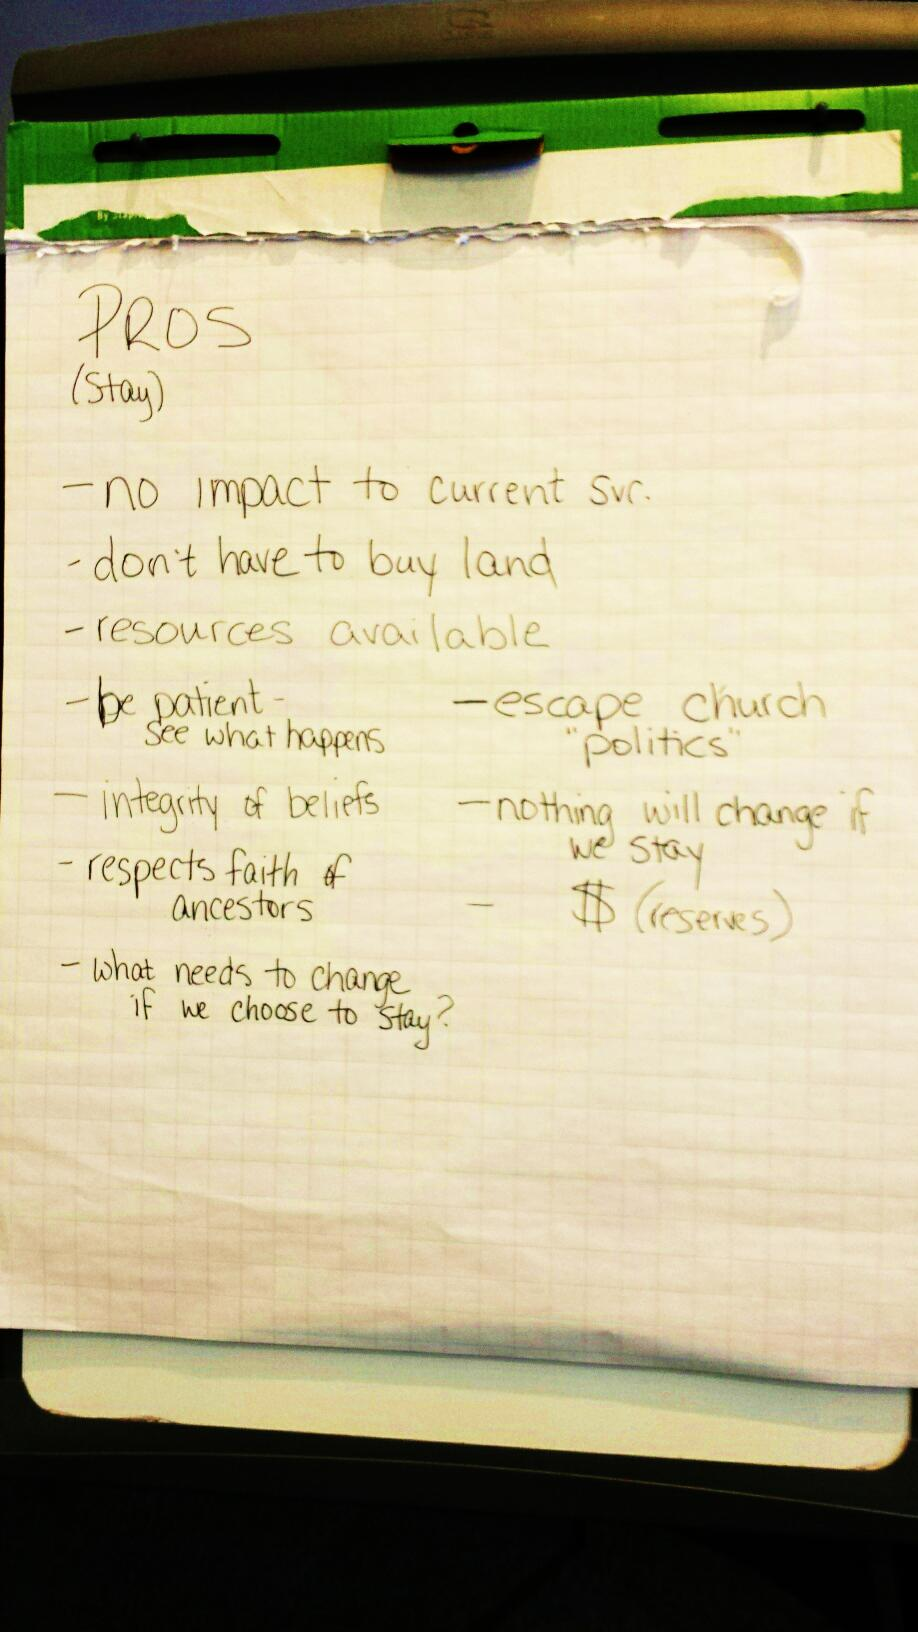 By Staples
PROS
(Stay)
- no impact to current svc.
- don't have to buy land
- resources available
- be patient -
see what happens
- integrity of beliefs
- respects faith of
ancestors
- what needs to change
if we choose to stay?
- escape church
"politics"
- nothing will change if
we stay
- $ (reserves)